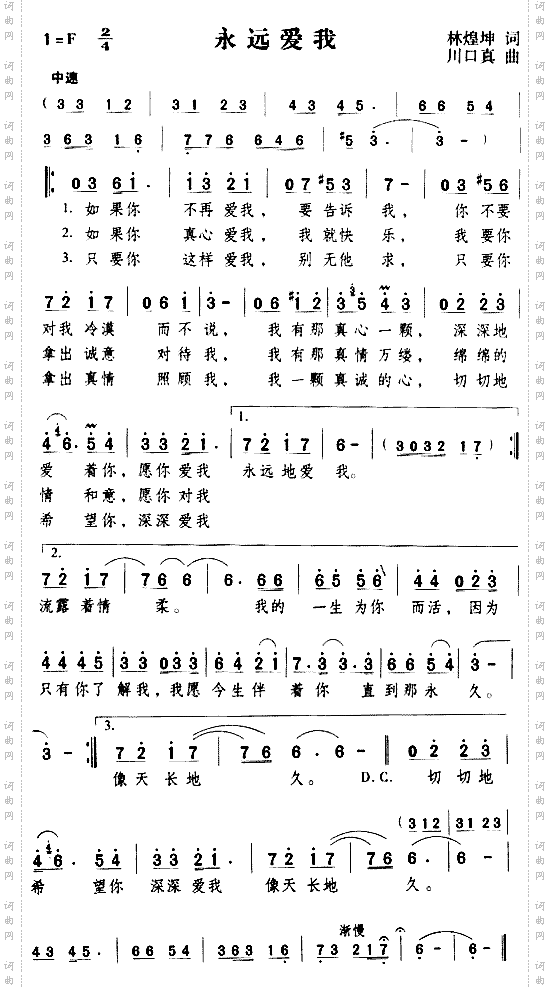 1=F 2/4 永远爱我 林煌坤 词
川口真 曲
中速
( 3 3 1 2 | 3 1 2 3 | 4 3 4 5 . | 6 6 5 4 |
3 6 3 1 6 | 7 7 6 6 4 6 | #5 3 . | 3 - )
0 3 6 1 . | 1 3 2 1 | 0 7 #5 3 | 7 - | 0 3 #5 6
1. 如果你 不再爱我， 要告诉我， 你不要
2. 如果你 真心爱我， 我就快乐， 我要你
3. 只要你 这样爱我， 别无他求， 只要你
7 2 1 7 | 0 6 1 | 3 - | 0 6 #1 2 | 3 5 4 3 | 0 2 2 3
对我冷漠 而不说， 我有那真心一颗， 深深地
拿出诚意 对待我， 我有那真情万缕， 绵绵的
拿出真情 照顾我， 我一颗真诚的心， 切切地
4 6 . 5 4 | 3 3 2 1 . | 1. 7 2 1 7 | 6 - | ( 3 0 3 2 1 7 )
爱 着你，愿你爱我 永远地爱 我。
情 和意，愿你对我
希 望你，深深爱我
2.
7 2 1 7 | 7 6 6 6 | 6 . 6 6 | 6 5 5 6 | 4 4 0 2 3
流露着情 柔。 我的 一生为你 而活，因为
4 4 4 5 | 3 3 0 3 3 | 6 4 2 1 | 7 . 3 3 . 3 | 6 6 5 4 | 3 -
只有你了 解我，我愿 今生伴 着你 直到那永 久。
3.
3 - | 7 2 1 7 | 7 6 6 . | 6 . | 0 2 2 3
像天长地 久。 D.C. 切切地
( 3 1 2 | 3 1 2 3
4 6 . 5 4 | 3 3 2 1 . | 7 2 1 7 | 7 6 6 . | 6 .
希 望你 深深爱我 像天长地 久。
渐慢
4 3 4 5 . | 6 6 5 4 | 3 6 3 1 6 | 7 3 2 1 7 | 6 - | 6 -
词曲网